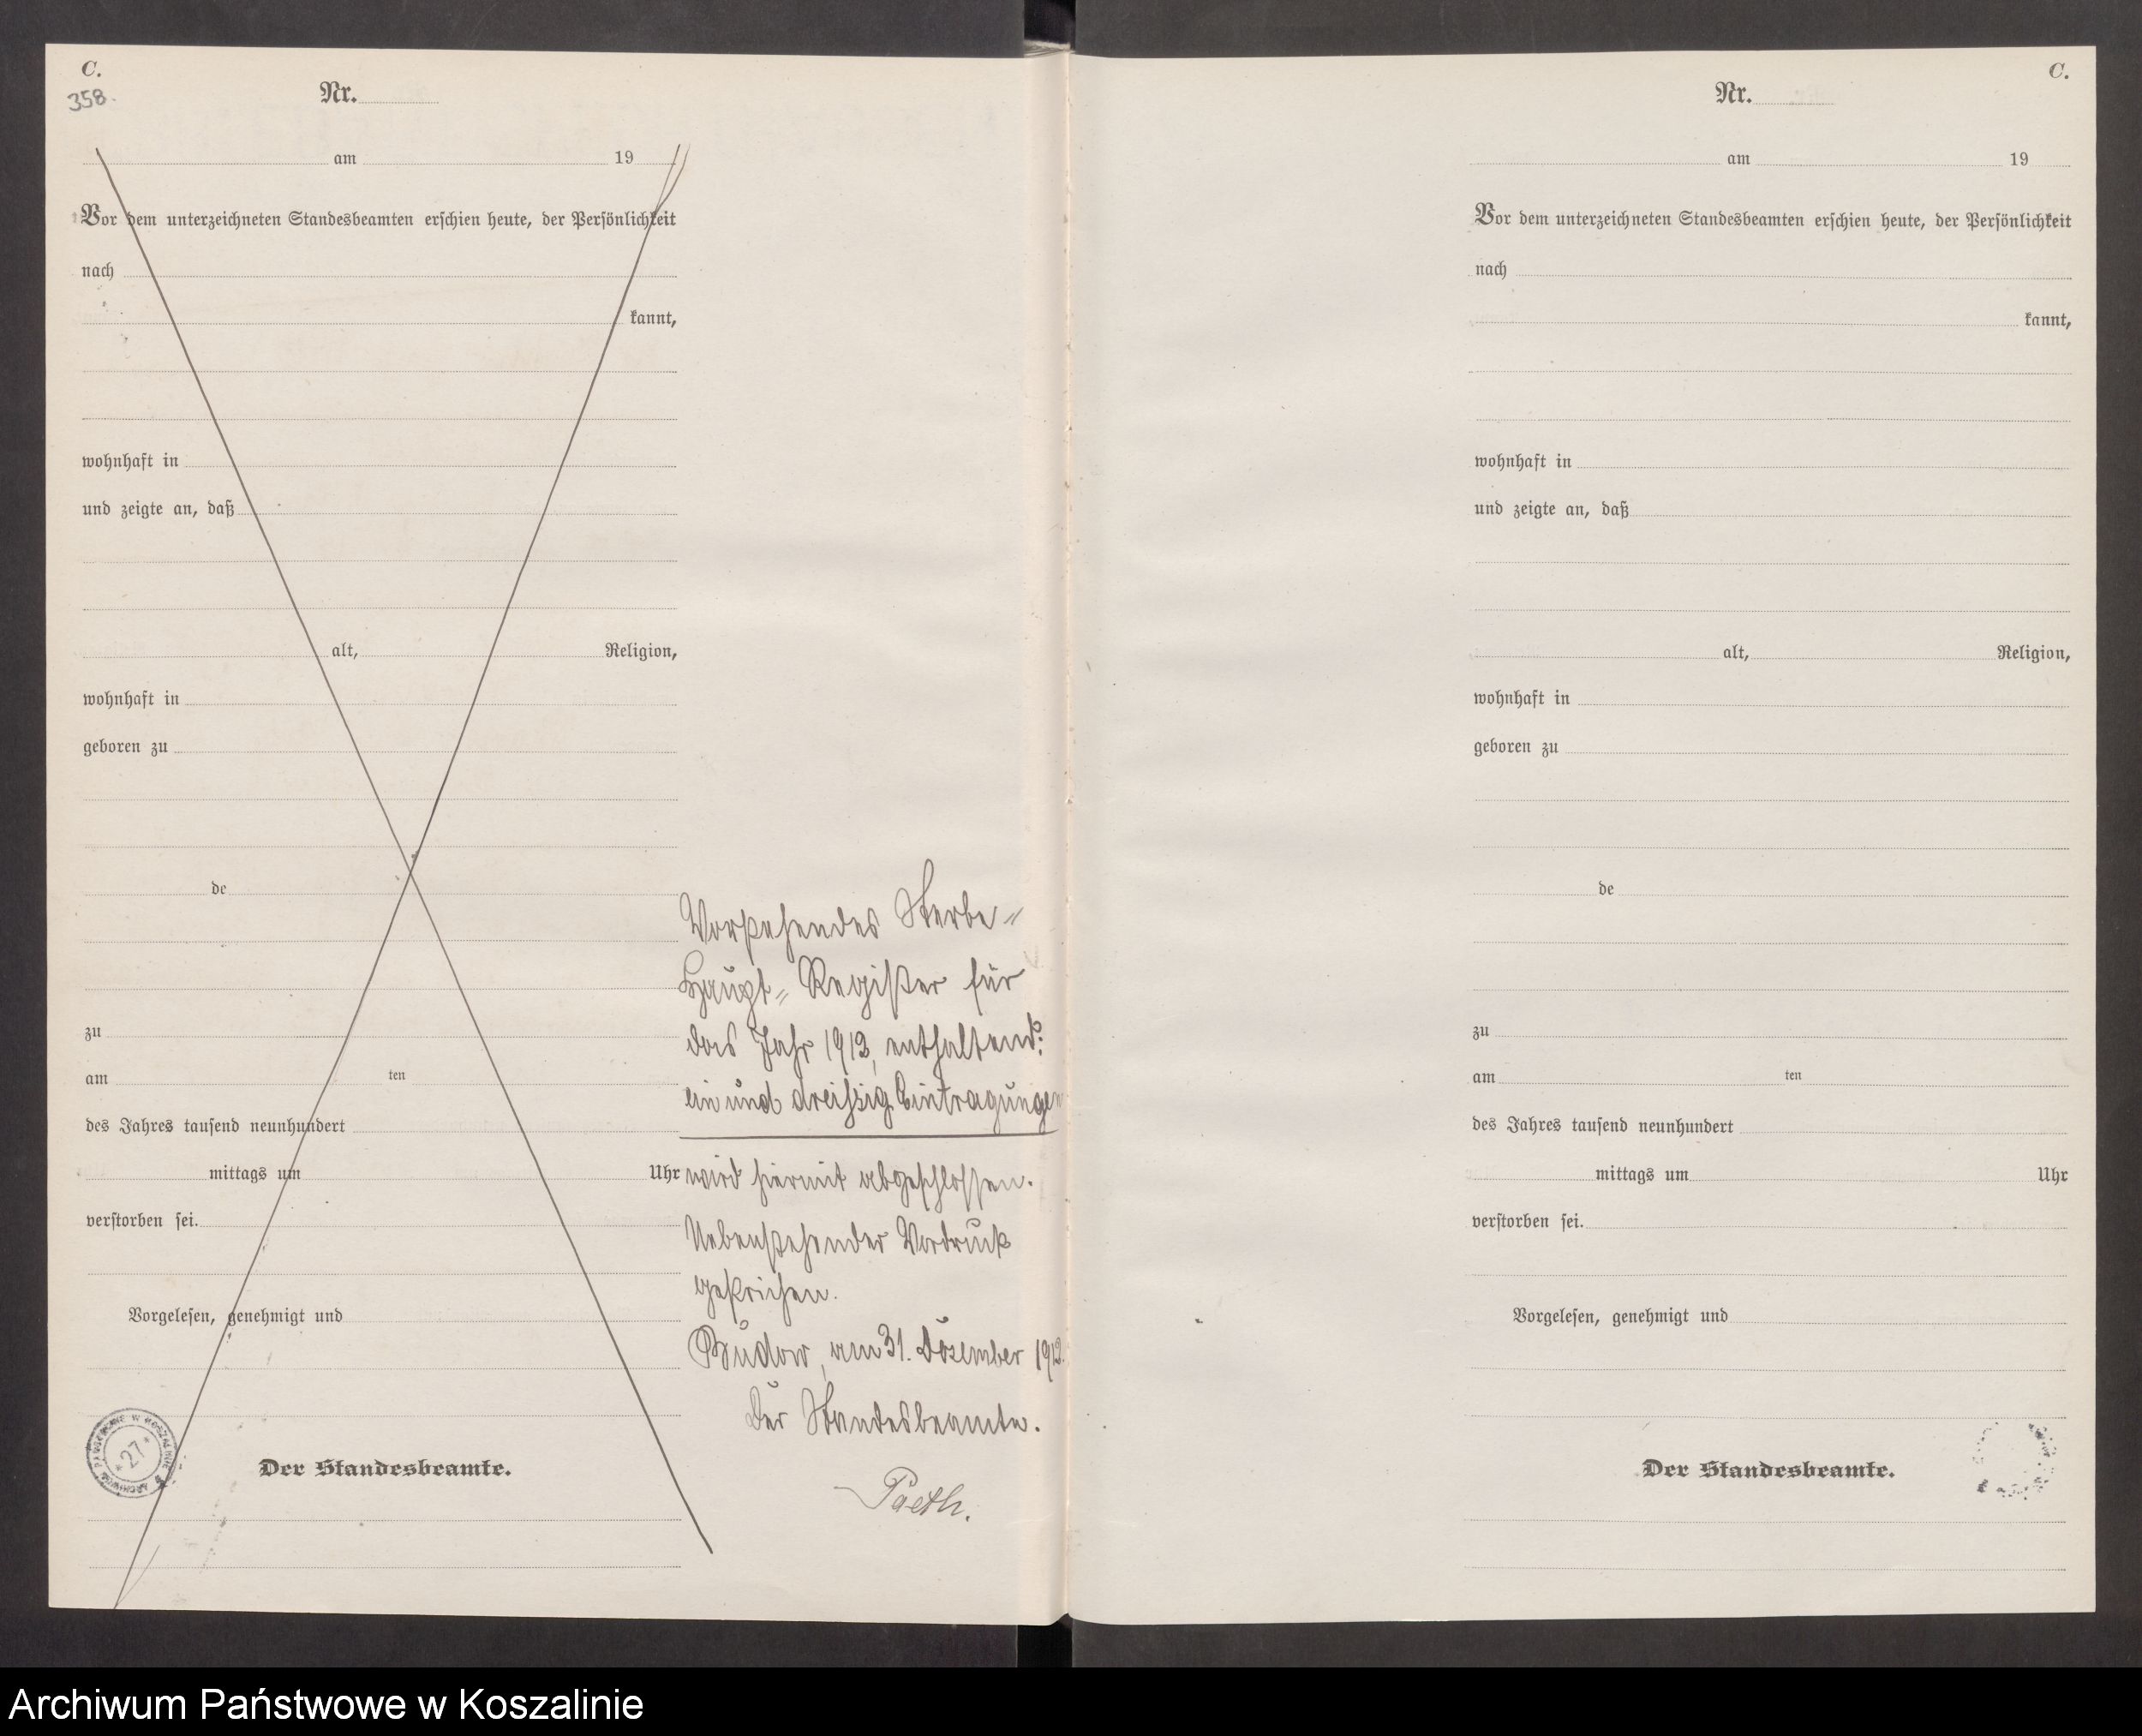 C.
358.
Nr.
am 19
Vor dem unterzeichneten Standesbeamten erschien heute, der Persönlichkeit
nach
kannt,
wohnhaft in
und zeigte an, daß
alt, Religion,
wohnhaft in
geboren zu
de
zu
am ten
des Jahres tausend neunhundert
mittags um Uhr
verstorben sei.
Vorgelesen, genehmigt und
Der Standesbeamte.
ARCHIWUM PAŃSTWOWE W KOSZALINIE
*27*
Vorstehendes Sterbe=
Haupt= Register für
das Jahr 1912, enthaltend:
ein und dreißig Eintragungen
wird hiermit abgeschlossen.
Nebenstehender Vordruck
gestrichen.
Budow, am 31. Dezember 1912.
Der Standesbeamte.
Paeth.
C.
Nr.
am 19
Vor dem unterzeichneten Standesbeamten erschien heute, der Persönlichkeit
nach
kannt,
wohnhaft in
und zeigte an, daß
alt, Religion,
wohnhaft in
geboren zu
de
zu
am ten
des Jahres tausend neunhundert
mittags um Uhr
verstorben sei.
Vorgelesen, genehmigt und
Der Standesbeamte.
Archiwum Państwowe w Koszalinie